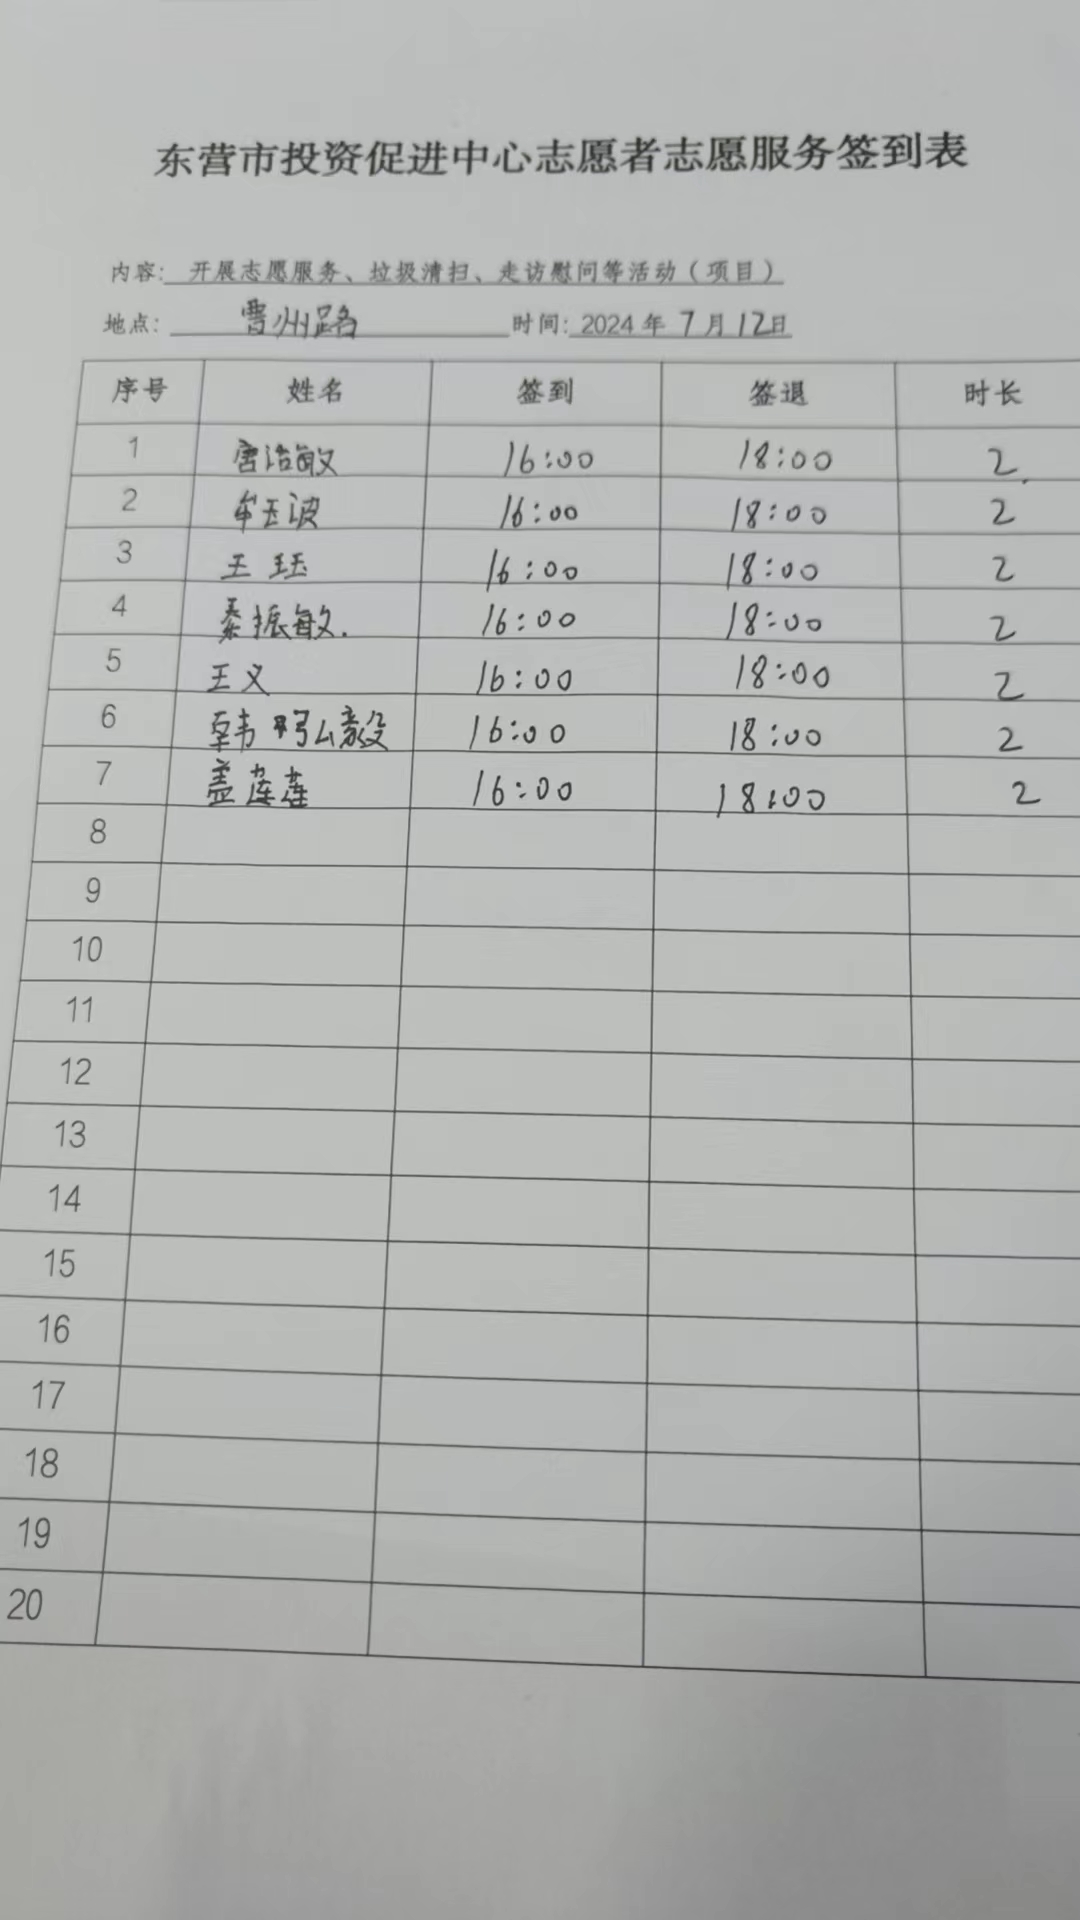 东营市投资促进中心志愿者志愿服务签到表
内容: 开展志愿服务、垃圾清扫、走访慰问等活动（项目）
地点: 曹州路 时间: 2024 年 7 月 12 日
序号 姓名 签到 签退 时长
1 唐浩敏 16:00 18:00 2
2 牟玉波 16:00 18:00 2
3 王珏 16:00 18:00 2
4 秦振敏. 16:00 18:00 2
5 王义 16:00 18:00 2
6 韩 毅 16:00 18:00 2
7 盖莲莲 16:00 18:00 2
8
9
10
11
12
13
14
15
16
17
18
19
20